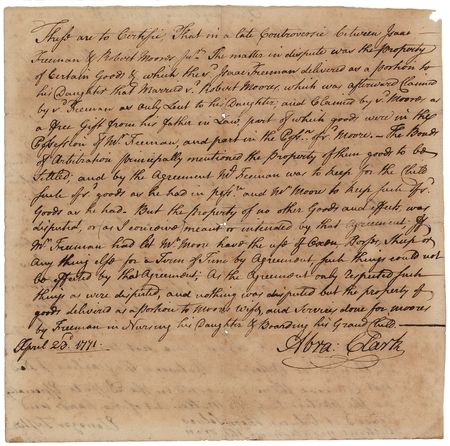 These are to Certifie, That in a late Controversie between Isaac
Freeman & Robert Moores Jun.r The matter in dispute was the Property
of Certain Goods & which the s.d Isaac Freeman delivered as a portion to
his Daughter that Married s.d Robert Moores, which was afterward Claimed
by s.d Freeman as only Lent to his Daughter, and Claimed by s.d Moores as
a free Gift from his father in Law, part of which goods were in the
Possession of Mr. Freeman, and part in the of s.d Moore. – The Bonds
of Arbitration principally mentioned the Property of them goods to be
Settled; and by the Agreement Mr. Freeman was to keep for the Child
such of s.d goods as he had in and Mr. Moore to keep such of s.d
Goods as he had. – But the Property of no other Goods and effects, was
disputed, or as I conceive meant or intended by that Agreement. If
Mr. Freeman had let Mr. Moore have the use of Oxen Horses, Sheep or
Any thing else for a Term of Time by Agreement, such things could not
be affected by that Agreement; As the Agreement only respected such
things as were disputed, and nothing was disputed but the property of
goods delivered as a portion to Moores Wife, and Services done for Moores
by Freeman in Nursing his Daughter & Boarding his Grand Child. –
April 23. 1771.
Abra. Clark